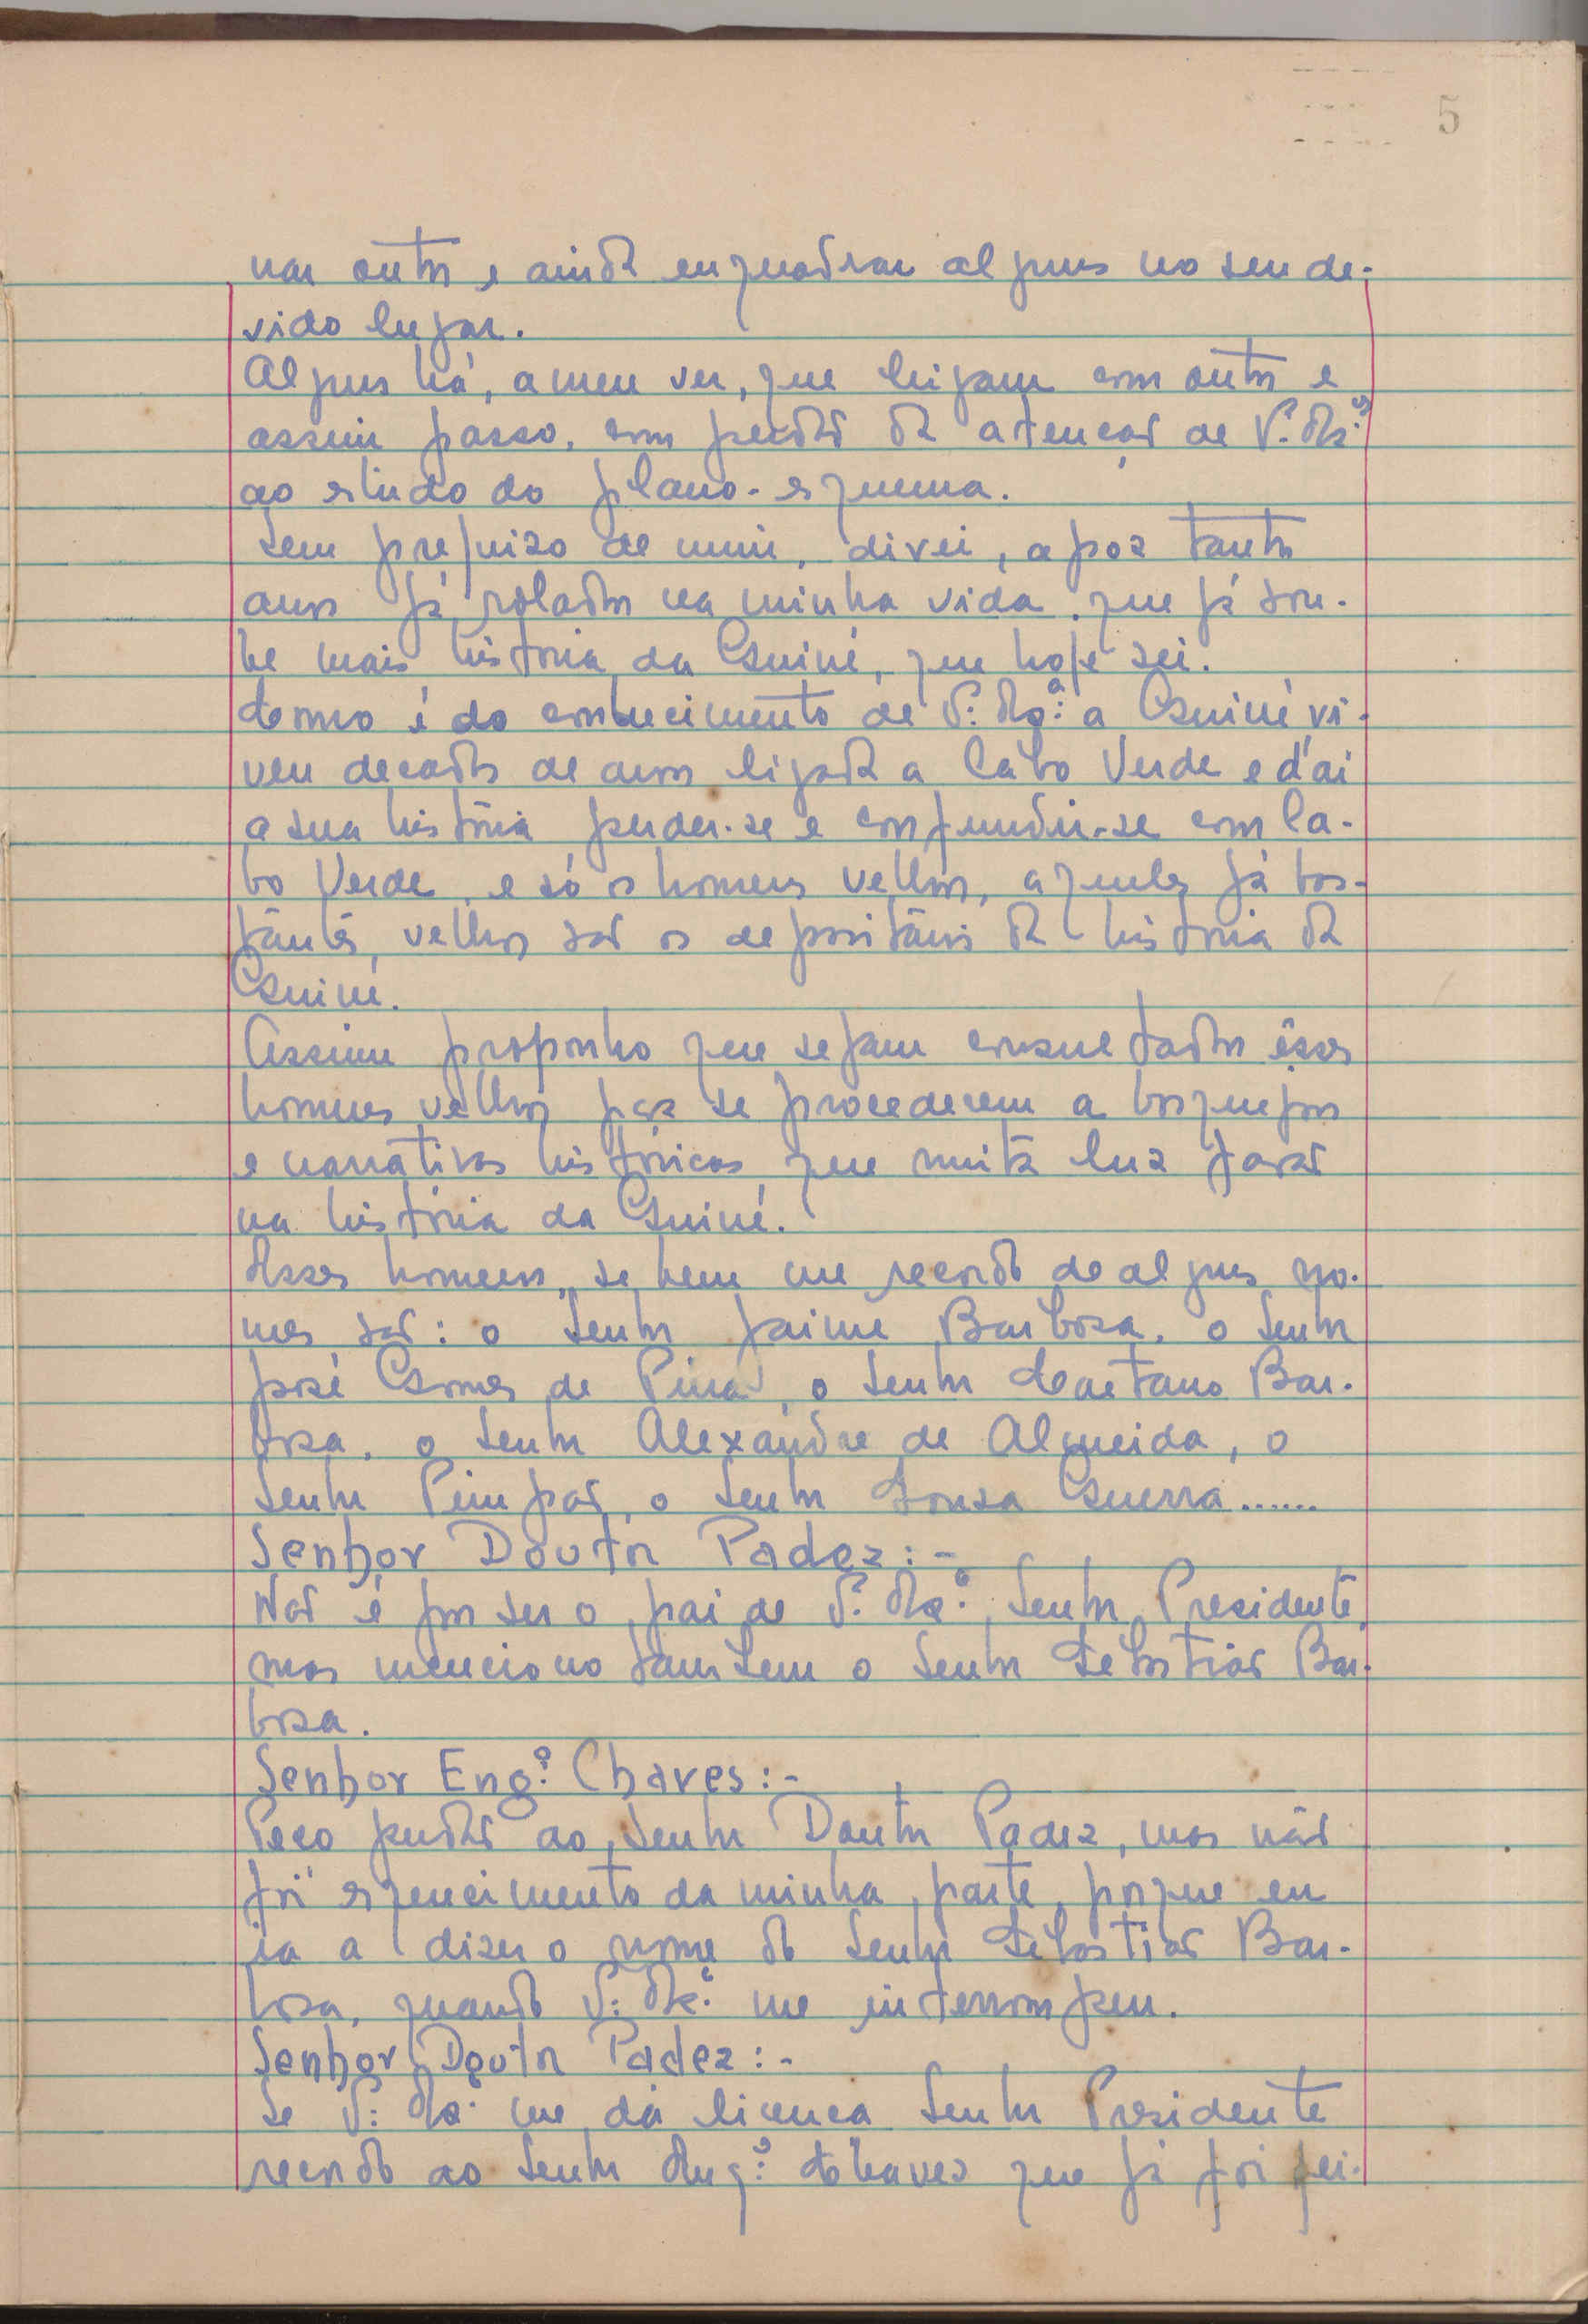 5
nar outros e ainda enquadrar alguns no seu de-
vido lugar.
Alguns há, a meu ver, que ligam com outros e
assim passo, com perdão da atenção de V. Ex.as
ao estudo do plano-esquema.
Sem prejuizo de mim, direi, apoz tantos
anos já rolados na minha vida, que já sou-
be mais historia da Guiné, que hoje sei.
Como é do conhecimento de V. Ex.ª a Guiné vi-
veu decadas de anos ligada a Cabo Verde e d'ai
a sua história perder-se e confundir-se com Ca-
bo Verde, e só os homens velhos, aqueles já bas-
tantes velhos são os depositários da historia da
Guiné.
Assim proponho que sejam consultados êsses
homens velhos para se procederem a bosquejos
e narrativas históricas que muita luz farão
na história da Guiné.
Esses homens, se bem me recordo de alguns no-
mes são: o Senhor Jaime Barbosa, o Senhor
José Gomes de Pina, o Senhor Caetano Bar-
bosa, o Senhor Alexandre de Almeida, o
Senhor Pimpão, o Senhor Sousa Guerra......
Senhor Doutor Padez:-
Não é por ser o pai de V. Ex.ª, Senhor Presidente,
mas menciono tambem o Senhor Sebastião Bar-
bosa.
Senhor Eng.º Chaves:-
Peço perdão ao Senhor Doutor Padez, mas não
foi esquecimento da minha parte, porque eu
ia a dizer o nome do Senhor Sebastião Bar-
bosa, quando V. Ex.ª me interrompeu.
Senhor Doutor Padez:-
Se V. Ex.ª me dá licença Senhor Presidente
recordo ao Senhor Eng.º Chaves que já foi fei-